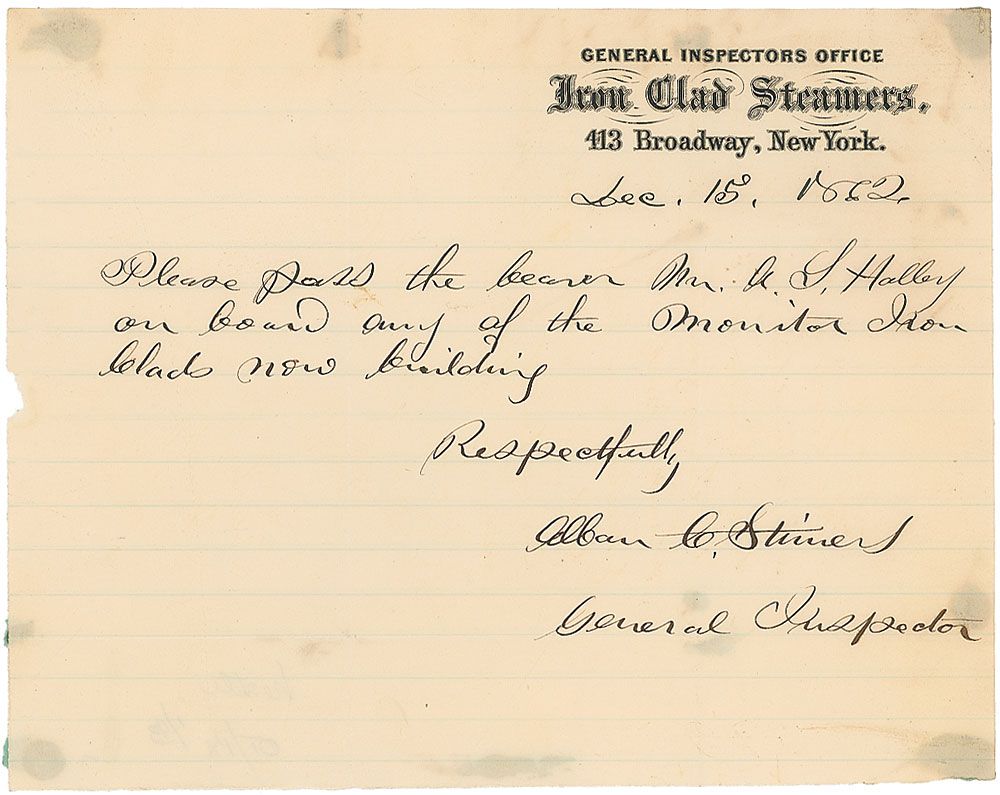 GENERAL INSPECTORS OFFICE
Iron Clad Steamers,
413 Broadway, New York.
Dec. 15, 1862
Please pass the bearer Mr. A. L. Holley
on board any of the Monitor Iron
Clads now building
Respectfully
Alban C. Stimers
General Inspector